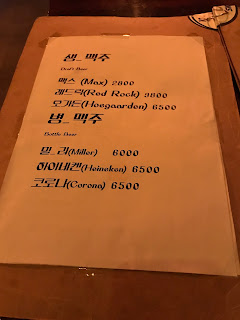 생_ 맥주
Draft Beer
맥스 (Max) 2800
레드락(Red Rock) 3800
호가든(Hoegaarden) 6500
병_ 맥주
Bottle Beer
밀_ 러(Miller) 6000
하이네켄(Heineken) 6500
코로나(Corona) 6500